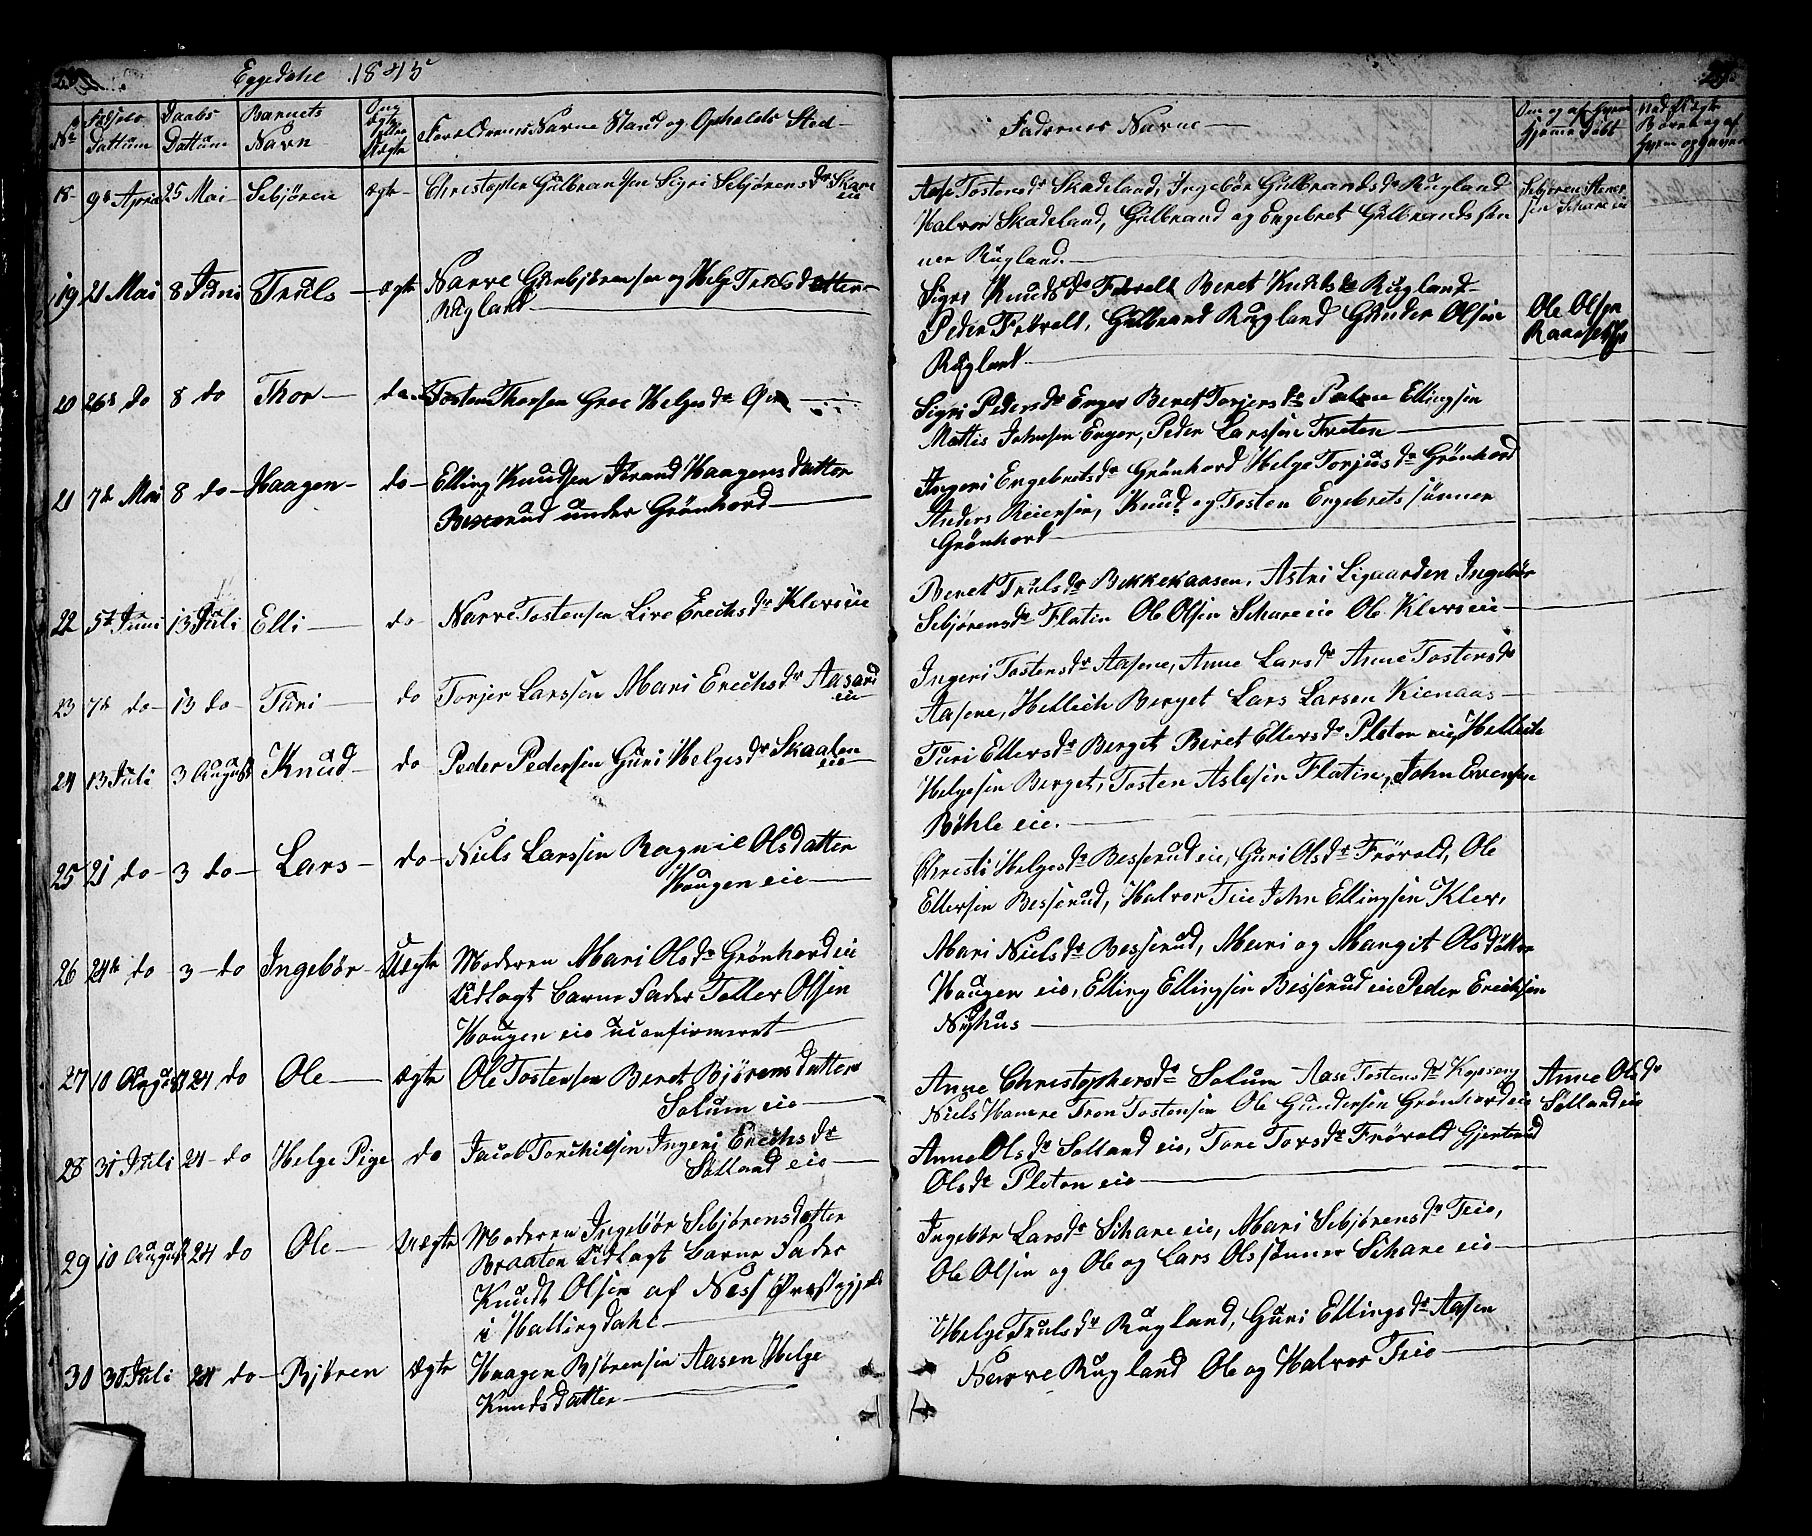 Eggedahl 1845
No Födsels Dattum Daabs Dattum Barnets Navn Forældrenes Navne Stand og Opholds Sted
Faddernes Navne
Hjemme Döbt
18 9de April 25 Mai Sebjören ægte Christopher Gulbrandsen Sigri Sebjörensdr Skare eie
Aase Tostensdr Skadeland, Ingebör Gulbrandsdr Rugland
Halvor Skadeland, Gulbrand og Engebret Gulbrandssön
ner Rugland.
Sebjören Stener
sen Skare eie
19 21 Mai 8 Juni Truls ægte Narve Gunbjörensen og Helge Trulsdatter
Rugland
Sigri Knudsdr Frövold Beret Knudsdr Rugland
Peder Frövold, Gulbrand Rugland Gunder Olsen
Rugland
Ole Olsen
20 26de do 8 do Thor do Tosten Thorsen Groe Helgesdr
Sigri Pedersdr Enger Beret Torjersdr Ellingsen
Mattis Johnsen Enger, Peder Larssen Træten
21 7de Mai 8 do Haagen do Elling Knudsen Jörand Haagensdatter
Besserud under Grönhord
Ingeri Engebretsdr Grönhord Helge Torjusdr Grönhord
Anders Reiersen, Knud og Tosten Engebretssönner
Grönhord
22 5te Juni 13 Juli Elli do Narve Tostensen Live Erichsdr Klev eie
Beret Trulsdr Bekkekaasen, Astri Ligaarden Ingebör
Sebjörensdr Flatin Ole Olsen Schare eie Ole Klev eie
23 7de do 13 do Turi do Torjer Larssen Mari Erichsdr Aasand
eie
Ingeri Tostensdr Aasene, Anne Larsdr Anne Tostensdr
Aasene, Hellich Berget Lars Larsen Kienaas
24 13 Juli 3 August Knud do Peder Pedersen Guri Helgesdr Skaalen
eie
Turi Ellersdr Berget Beret Ellersdr Pleton eie, Hellich
Helgesen Berget, Tosten Aslesen Flatin, John Evensen
Böhle eie.
25 21 do 3 do Lars do Niels Larssen Ragnil Olsdatter
Haugen eie
Christi Helgesdr Besserud eie, Guri Olsdr Frövold, Ole
Ellersen Besserud, Halvor Teie John Ellingsen Klev,
26 24de do 3 do Ingebör Uægte Moderen Mari Olsdr Grönhord eie
Udlagt Barne Fader Toller Olsen
Haugen eie uconfirmeret
Mari Nielsdr Besserud, Mari og Margit Olsdötter
Haugen eie, Elling Ellingsen Besserud eie Peder Erichsen
Nyhus
27 10 August 24 do Ole ægte Ole Tostensen Beret Björensdatter
Solum eie
Anne Christophersdr Solum Aase Tostensdr Kopseng
Niels Havere Tron Tostensen Ole Gundersen Grönhord eie
Anne Olsdr
Solland eie
28 31 Juli 24 do Helge Pige do Jacob Torchilsen Ingeri Erichsdr
Solland eie
Anne Olsdr Solland eie, Tone Torsdr Frövold Gjertrud
Olsdr Pleton eie
29 10 August 24 do Ole Uægte Moderen Ingebör Sebjörensdatter
Braaten Udlagt Barne Fader
Knudt Olsen af Ness Præstegjeld
i Hallingdahl
Ingebör Larsdr Schare eie, Mari Sebjörensdr Teie,
Ole Olsen og Ole og Lars Olssönner Schare eie
30 30 Juli 24 do Björen ægte Haagen Björensen Aasen Helge
Knudsdatter
Helge Trulsdr Rugland, Guri Ellingsdr Aasen
Narve Rugland Ole og Halvor Teie